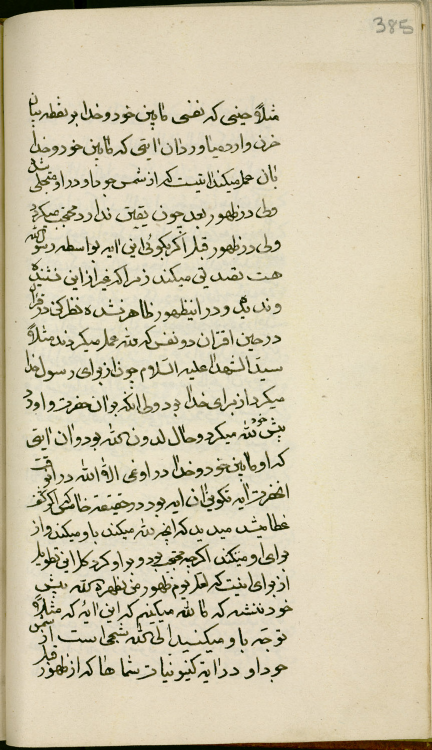 385
مثلا در حینی که نفسی مابین خود و خدا بر نقطه بیان
حزن وارد میاورد ان ایتی که مابین خود و خدا
بان عمل میکند ایتیست که از شمس جود او در او متجلی شده
ولی در ظهور بعد چون یقین ندارد محتجب میگردد
ولی در ظهور قبل اگر بگوئی این ایه بواسطه رسول الله
هست تصدیق میکند زیرا که غیر از این نشنیده
و ندیده و در این ظهور ظاهر نشده نظر کن در قرآن
در حین اقتران دو نفس که لله عمل میکردند مثلا
سید الشهدا علیه السلام چون از برای رسول خدا
میکرد از برای خدا بود ولی انکه بر ان حضرت وارد
پیش خود لله میکرد و حال لدون الله بود و ان ایتی
که او مابین خود و خدا در او غیر الله را الله در ان وقت
انحضرت ایه تکوین ان ایه بود در حقیقت خاصه اگر کشف
غطا میشد میدید که انچه لله میکند باو میکند و از
برای او میکند اگرچه محتجب بود و بر او کرد کل این طویل
از برای اینست که اهل یوم ظهور من یظهره الله پیش
خود ننشیند که ما لله میکنیم که این ایه که مثلا
توجه باو میکنید الی الله شبحی است از شمس
جود او در ایه کینونیات شماها که از ظهور قبل